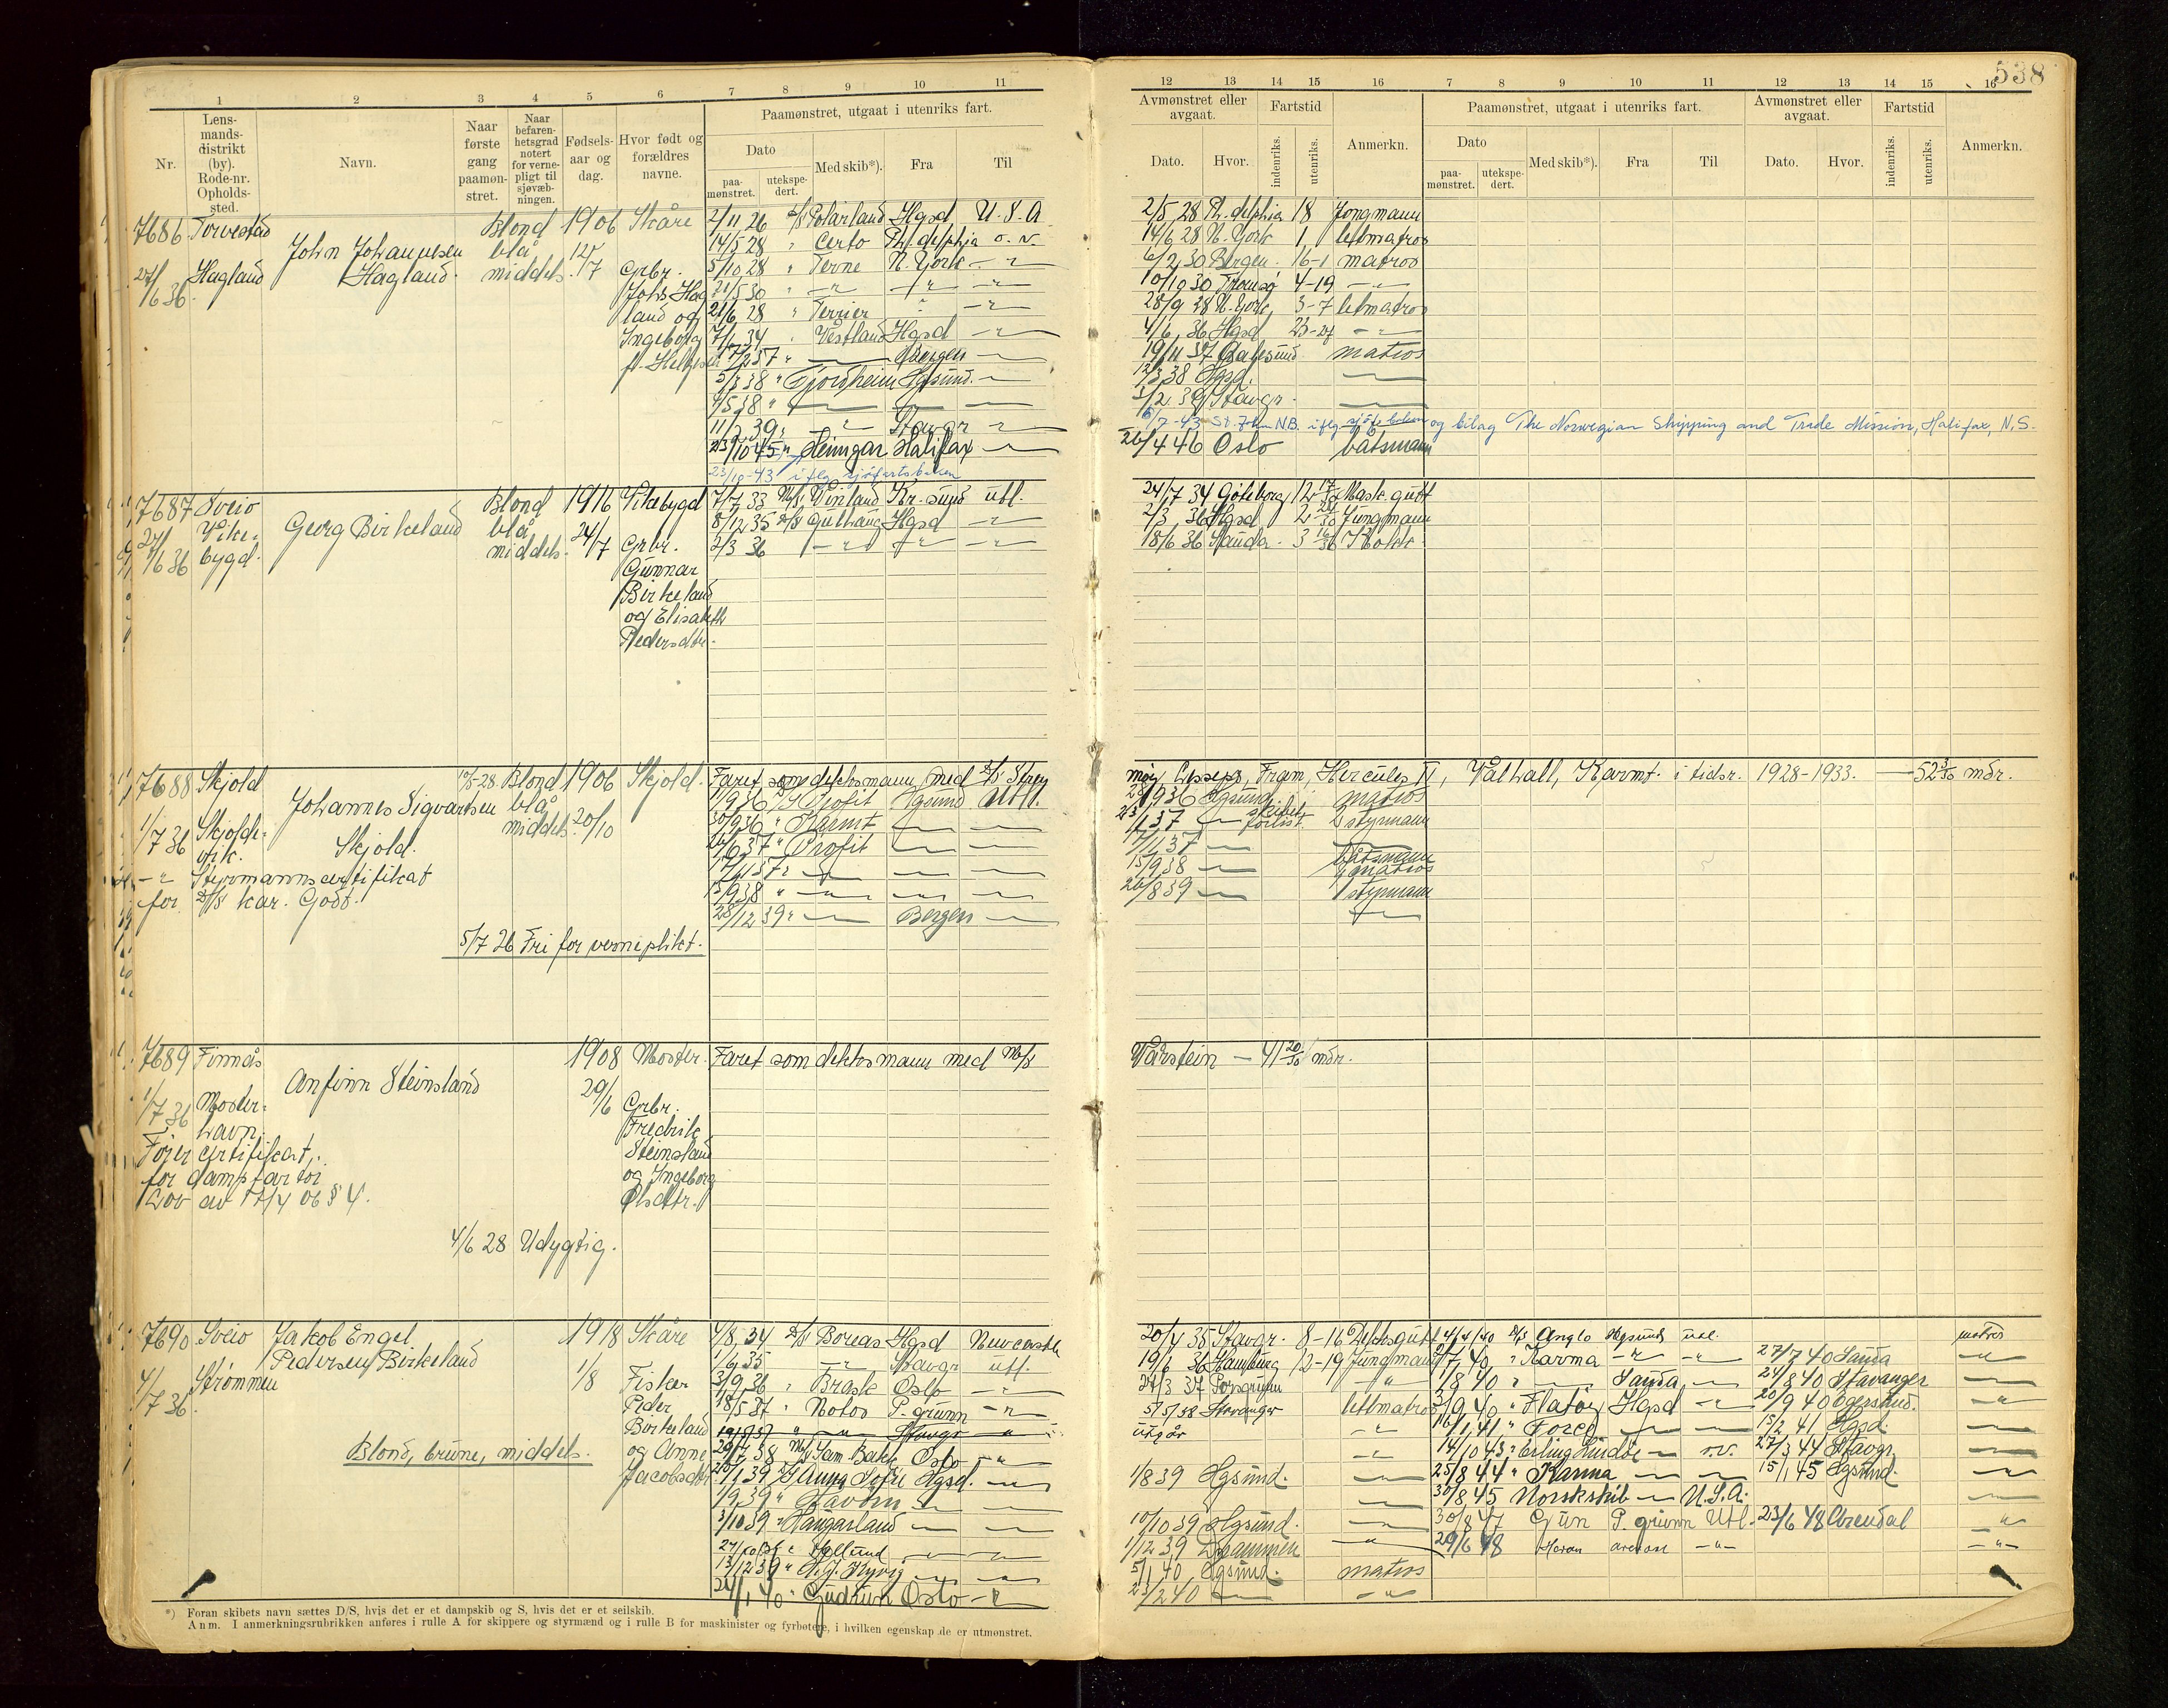 538
1 2 3 4 5 6 7 8 9 10 11
12 13 14 15 16 7 8 9 10 11 12 13 14 15 16
Nr.
Lens-
mands-
distrikt
(by).
Rode-nr.
Opholds-
sted.
Navn.
Naar
første
gang
paamøn-
stret.
Naar
befaren-
hetsgrad
notert
for verne-
pligt til
sjøvæb-
ningen.
Fødsels-
aar og
dag.
Hvor født og
forældres
navne.
Paamønstret, utgaat i utenriks fart.
Dato
paa-
mønstret.
utekspe-
dert.
Med skib*).
Fra
Til
Avmønstret eller
avgaat.
Dato.
Hvor.
Fartstid
indenriks.
utenriks.
Anmerkn.
Paamønstret, utgaat i utenriks fart.
Dato
paa-
mønstret.
utekspe-
dert.
Med skib*).
Fra
Til
Avmønstret eller
avgaat.
Dato.
Hvor.
Fartstid
indenriks.
utenriks.
Anmerkn.
7686 Torvestad
27/6 36. Hagland
John Johannesen
Hagland.
Blond
blå
middels.
1906
12/7
Skåre
Grbr.
Johs Hag
land og
Ingeborg
f. Helgesen
2/11 26 D/S Polarland Hgsd U.S.A
14/5 28 " Certo Ph.delphia o.v.
5/10 28 " Terne N. York — " —
21/5 30 " — " — — " — — " —
21/6 28 " Terrier " — " —
Vestland Hgsd — " —
17/2 37 " — Bergen —
5/3 38 " Fjordheim Hgsund. —
4/5 38 " — — —
11/2 39 " — " — Stavgr — " —
23/10 45 " Heimgar Halifax —
23/10-43 iflg sjøfartsboken
2/5 28 Ph.delphia 18 Jongmann
14/6 28 N. York 1 lettmatros
6/2 30 Bergen. 16-1 matros
10/10 30 Tromsø 4-19 — " —
28/9 28 N. York, 3-7 letmatros
4/6 36 Hgsd 23-27 — " —
19/11 37 Aalesund matros
12/3 38 Hgsd. —
1/2 39 Stavgr. —
6/7-43 St. John NB. iflg sjøfs.boken og bilag The Norwegian Shipping and Trade Mission, Halifax, N,S.
26/4 46 Oslo båtsmann
7687 Sveio
27/6 36 Vike-
bygd.
Georg Birkeland
Blond
blå
middels.
1916
24/7
Vikebygd
Grbr.
Gunnar
Birkeland
og Elisabeth
Pedersdtr.
7/7 33 M/S Vinland Kr.sund utl.
8/12 35 D/S Gulhaug Hgsd — " —
2/3 36 — " — — " — — " —
24/7 34 Göteborg 12 17/30 Mask.gutt
2/3 36 Hgsd 2 24/30 Jungmann
18/6 36 Sauda. 3 16/30 Kokk
7688 Skjold
1/7 36 Skjolde-
vik.
— " — Styrmannscertifikat
for D/S kar. Godt.
Johannes Sigvartsen
Skjold.
Blond
blå
middels.
1906
20/10
Skjold.
5/7 26 Fri for verneplikt.
Faret som dekksmann med D/S Streg
1/9 36 D/S Profit Hgsund Utl.
30/9 36 " Karmt — —
Profit — —
15/9 38 " — " — — —
28/12 39 " — Bergen —
Fram, Hercules IV, Valhall, Karmt. i tidsr. 1928-1933. — 52 3/30 mdr.
28/9 36 Hgsund matros
23/1 37 — skibet forlist. 2 styrmann
17/1 37 — —
15/9 38 — båtsmann
matros
26/8 39 — styrmann
—
7689 Finnås
1/7 36 Moster-
havn.
Fører certifikat,
for dampfartøi
Lov av 17/4 06 § 4.
Anfinn Steinsland
4/6 28 Udygtig.
1908
29/6
Moster.
Grbr.
Fredrik
Steinsland
og Ingeborg
Olsdtr.
Faret som dekksmann med M/S
Vårstein — 41 20/30 mdr.
7690 Sveio
4/7 36. Strømmen
Jakob Engel
Pedersen Birkeland
Blond, brune, middels.
1918
1/8
Skåre
Fisker
Peder
Birkeland
og Anne
Jacobsdtr
4/8 34 D/S Boreas Hgsd Newcastle
1/6 35 — " — Stavgr utl.
3/9 36 " Brask Oslo — " —
18/5 37 " Notos P.grunn — " —
29/7 38 M/S Sam Bakke Oslo — " —
20/1 39 D/S Anna Sofie Hgsd. —
1/9 39 " Havørn — —
3/10 39 " Haugarland — —
13/12 39 " A.J. Kyvig — —
24/1 40 " Gudrun Oslo — " —
20/4 35 Stavgr. 8-16 Dekksgutt
19/6 36 Hamburg 12-19 Jungmann
27/3 37 Porsgrunn — " —
5/5/38 Stavanger lettmatros
utgår — " —
1/8 39 Hgsund. —
10/10 39 Hgsund. —
1/12 39 Drammen — " —
5/1 40 Hgsund. matros
23/2 40 — — " —
4/4/40 D/S Anglo Hgsund utl. matros
7/7 40 " Karma — " — — " — 27/7 40 Sauda — " —
1/8 40 " — Sauda — 24/8 40 Stavanger —
3/9 40 " Flatøy Hgsd — " — 20/9 40 Egersund. — " —
16/1 41 " Force — — 15/2 41 Hgsd. —
14/10 43 " Erling Lindøe — n.v. 27/3 44 Stavgr. —
25/8 44 " Karma — — 15/1 45 Hgsund. —
30/8 45 Norskskib — U.S.A. —
30/8 47 Grun P. grunn Utl. 23/6 48 Arendal — " —
29/6 48 — " — — " —
*) Foran skibets navn sættes D/S, hvis det er et dampskib og S, hvis det er et seilskib.
Anm. I anmerkningsrubrikken anføres i rulle A for skippere og styrmænd og i rulle B for maskinister og fyrbøtere, i hvilken egenskap de er utmønstret.